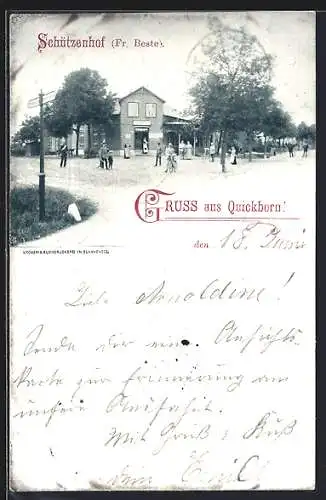 Schützenhof (Fr. Beste).
GRUSS aus Quickborn!
den 18. Juni
Liebe Arnoldine!
Sende dir eine Ansichts
karte zur Erinnerung an
unsere Ausfahrt.
Mit Gruß & Kuß
dein Emil